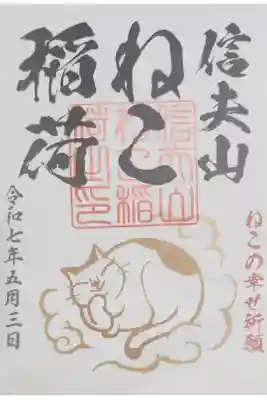 信夫山
ねこ
稲荷
信夫山
ねこ稲
荷之印
ねこの幸せ祈願
令和七年五月三日